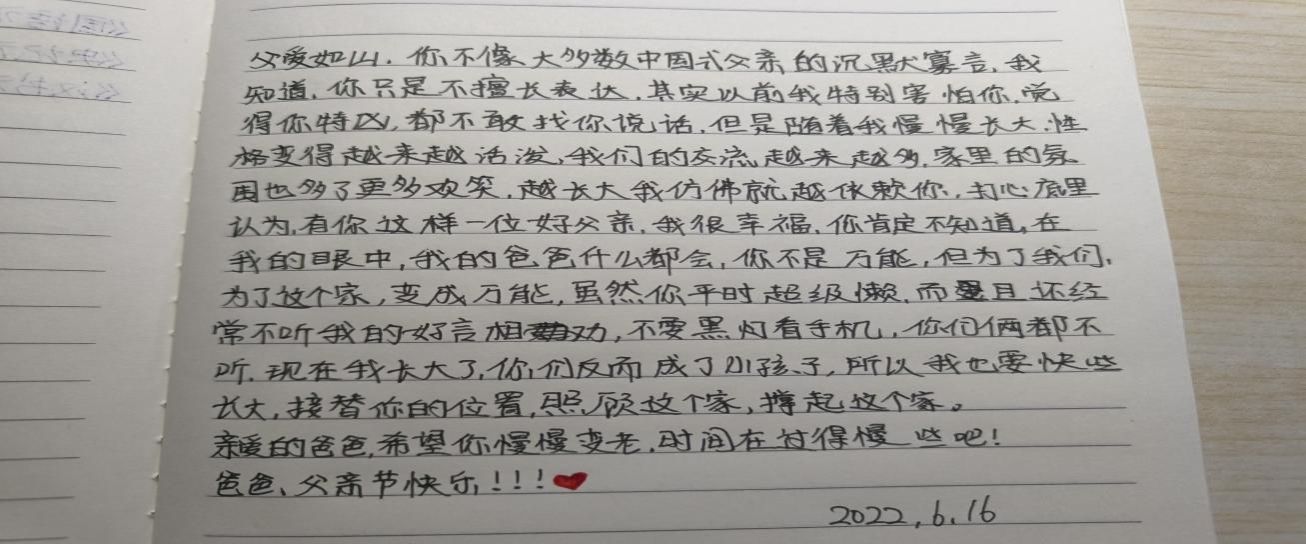 父爱如山.你不像大多数中国式父亲的沉默寡言,我
知道,你只是不擅长表达,其实以前我特别害怕你,觉
得你特凶,都不敢找你说话,但是随着我慢慢长大,性
格变得越来越活泼,我们的交流越来越多,家里的氛
围也多了更多欢笑,越长大我仿佛就越依赖你,打心底里
认为,有你这样一位好父亲,我很幸福,你肯定不知道,在
我的眼中,我的爸爸什么都会,你不是万能,但为了我们,
为了这个家,变成万能,虽然你平时超级懒,而且还经
常不听我的好言相劝,不要黑灯看手机,你们俩都不
听.现在我长大了,你们反而成了小孩子,所以我也要快些
长大,接替你的位置,照顾这个家,撑起这个家。
亲爱的爸爸,希望你慢慢变老,时间在过得慢些吧!
爸爸、父亲节快乐!!!
2022,6.16